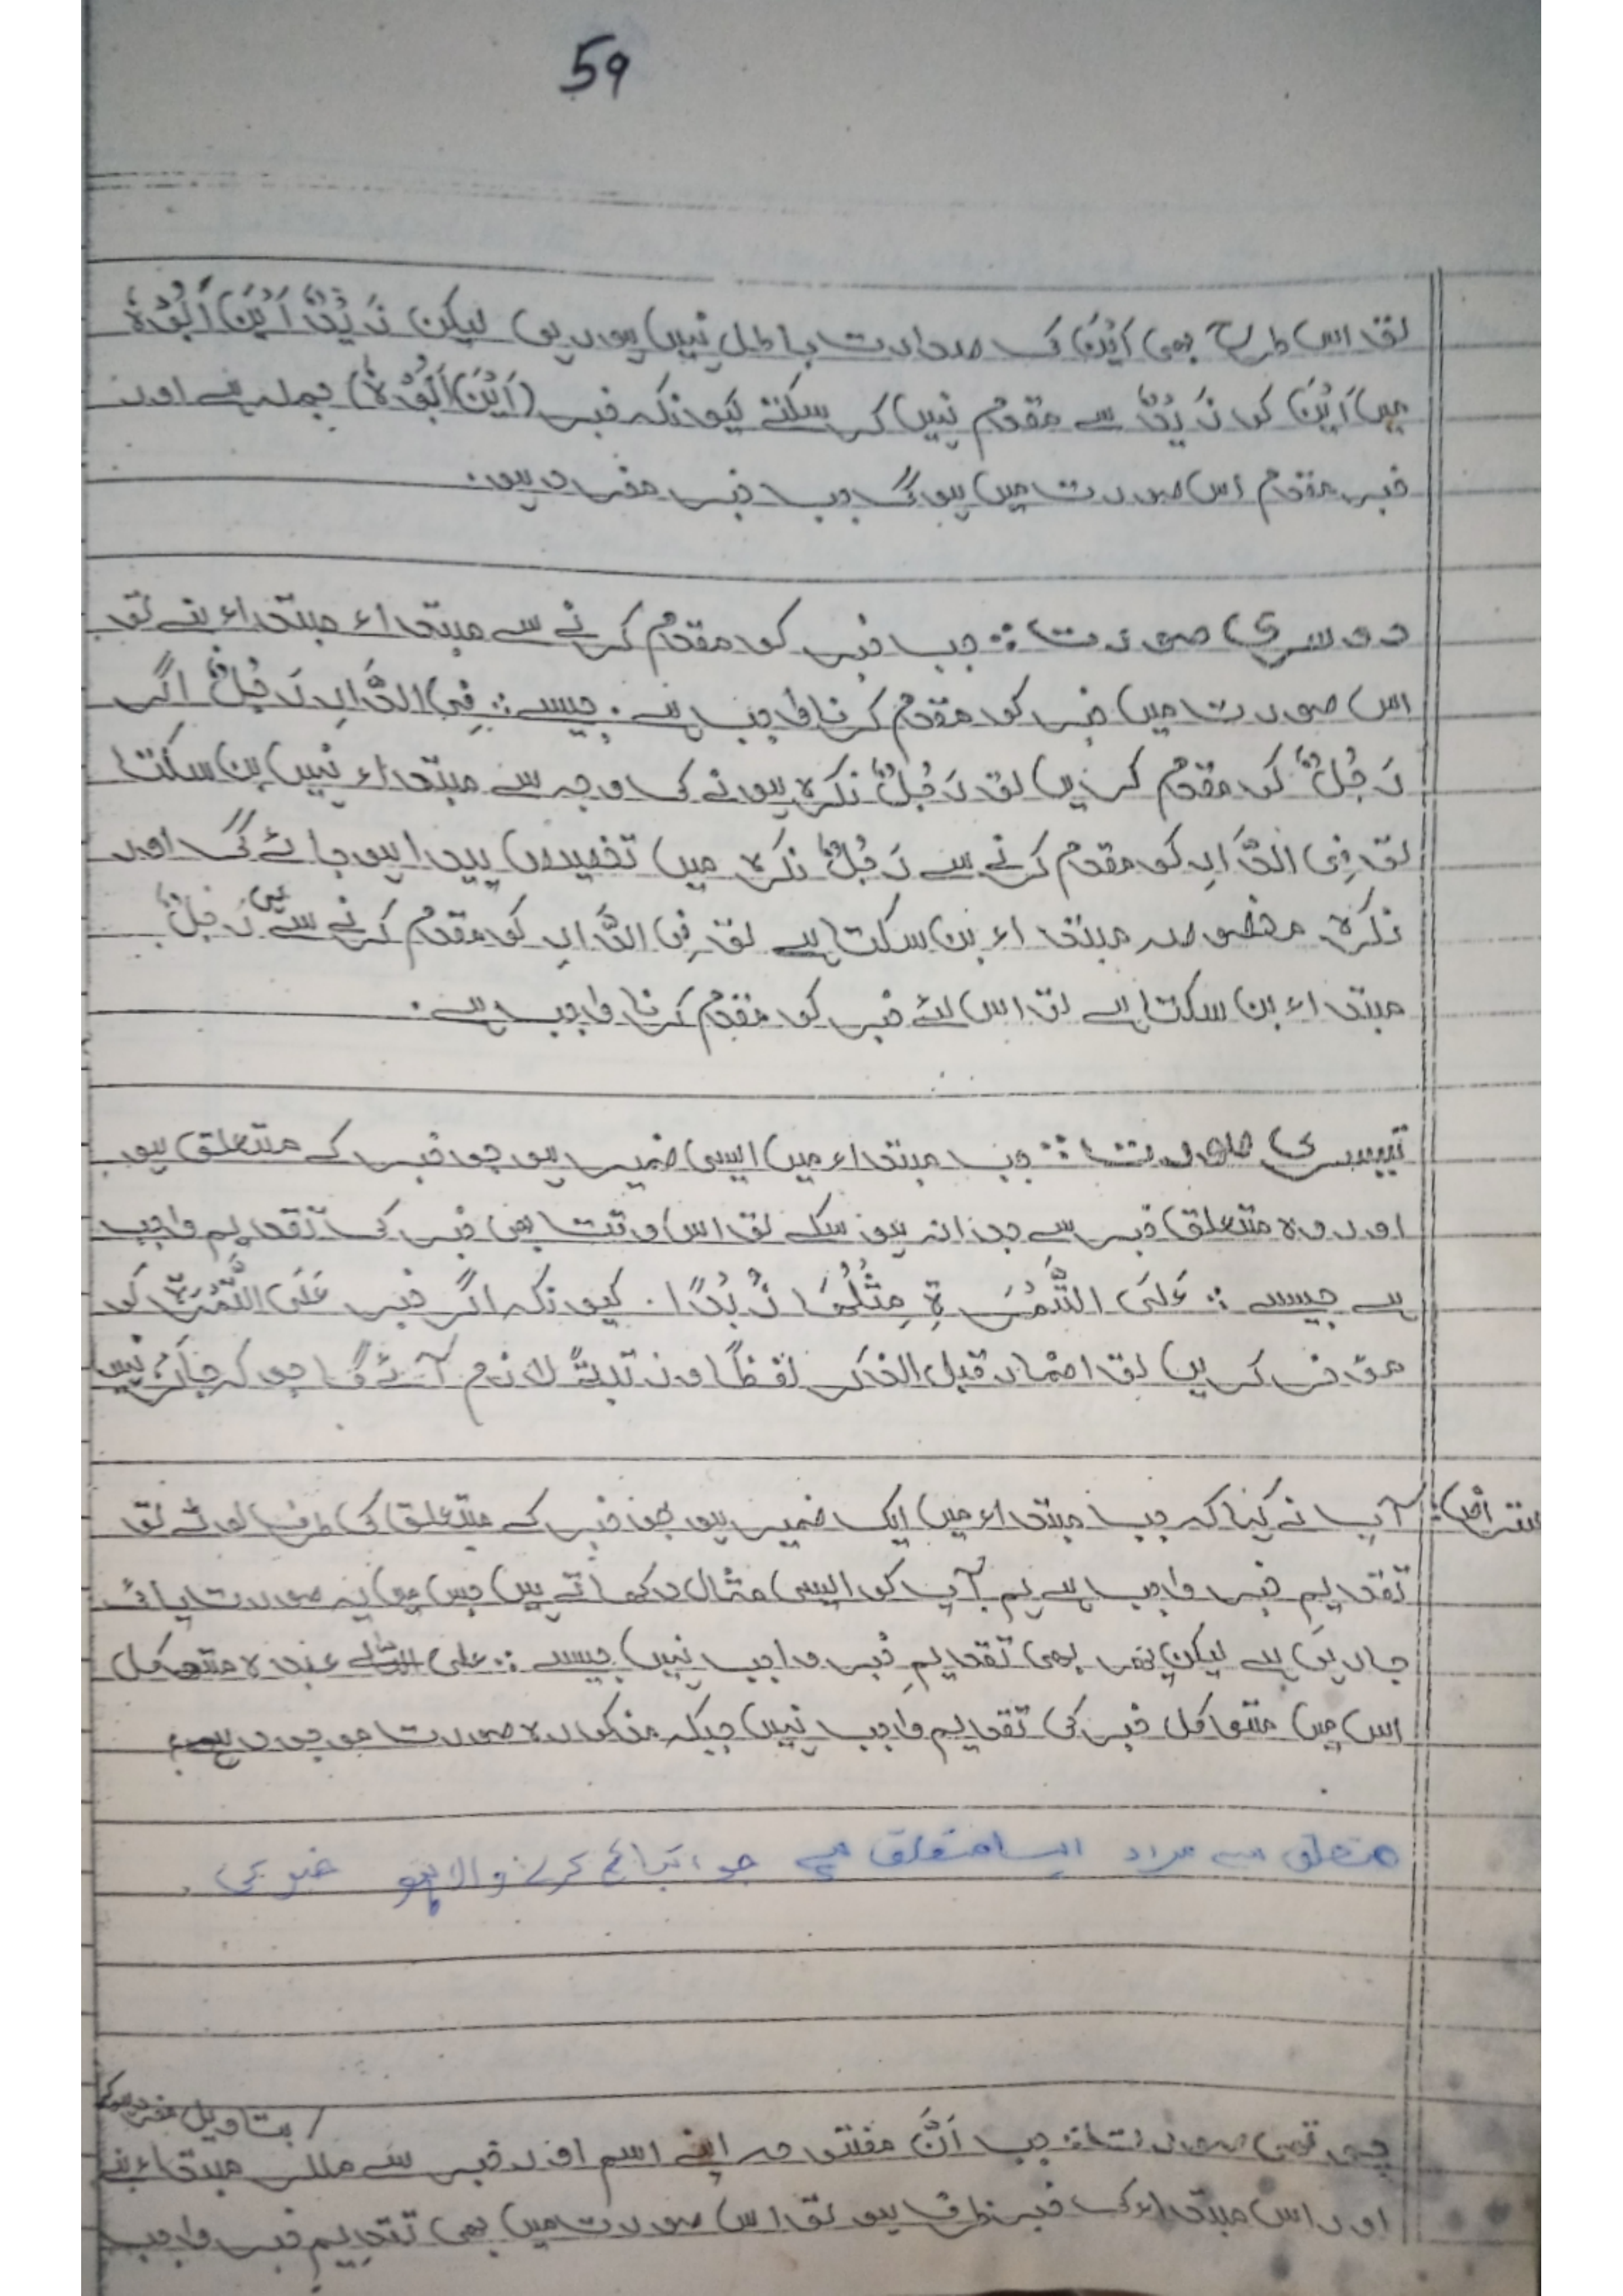 59
تو اس طرح بھی اَیْنَ کی صدارت باطل نہیں ہو رہی لیکن زَیْدٌ اَیْنَ اَبُوْہُ
میں اَیْنَ کو زَیْدٌ سے مقدم نہیں کر سکتے کیونکہ خبر (اَیْنَ اَبُوْہُ) جملہ ہے اور
خبر مقدم اس صورت میں ہو گی جب خبر مفرد ہو۔
دوسری صورت :: جب خبر کو مقدم کرنے سے مبتداء مبتداء بنے تو
اس صورت میں خبر کو مقدم کرنا واجب ہے۔ جیسے :: فِی الدَّارِ رَجُلٌ اگر
رَجُلٌ کو مقدم کریں تو رَجُلٌ نکرہ ہونے کی وجہ سے مبتداء نہیں بن سکتا
تو فِی الدَّارِ کو مقدم کرنے سے رَجُلٌ نکرہ میں تخصیص پیدا ہو جائے گی اور
نکرہ مخصوصہ مبتداء بن سکتا ہے تو فِی الدَّارِ کو مقدم کرنے سے ہی رَجُلٌ
مبتداء بن سکتا ہے تو اس لئے خبر کو مقدم کرنا واجب ہے۔
تیسری صورت :: جب مبتداء میں ایسی ضمیر ہو جو خبر کے متعلق ہو
اور وہ متعلق خبر سے جدا نہ ہو سکے تو اس وقت بھی خبر کی تقدیم واجب
ہے جیسے :: عَلَی التَّمْرَۃِ مِثْلُھَا زُبْدًا۔ کیونکہ اگر خبر عَلَی التَّمْرَۃِ کو
مؤخر کریں تو اضمار قبل الذکر لفظًا و رتبۃً لازم آئے گا جو کہ جائز نہیں
آپ نے کہا کہ جب مبتداء میں ایک ضمیر ہو جو خبر کے متعلق کی طرف لوٹے تو
تقدیمِ خبر واجب ہے ہم آپ کو ایسی مثال دکھاتے ہیں جس میں یہ صورت پائی
جا رہی ہے لیکن پھر بھی تقدیمِ خبر واجب نہیں جیسے :: علی اللہ عبدہ متوکل
اس میں متوکل خبر کی تقدیم واجب نہیں جبکہ مذکورہ صورت موجود ہے۔
متعلق سے مراد ایسا متعلق ہے جو اتباع کرنے والا ہو خبر کی۔
بتاویل مفرد ہو کر
چوتھی صورت :: جب اَنَّ مفتوحہ اپنے اسم اور خبر سے ملکر مبتداء بنے
اور اس مبتداء کی خبر ظرف ہو تو اس صورت میں بھی تقدیمِ خبر واجب